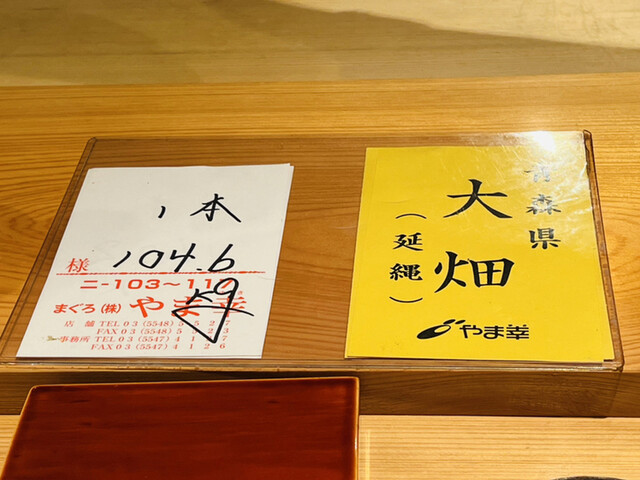 1本
様 104.6
ニ-103〜110
kg
まぐろ(株)やま幸
店舗 TEL 03(5548)5527
FAX 03(5548)5523
事務所 TEL 03(5547)4127
FAX 03(5547)4126
青森県
大畑
(延縄)
やま幸